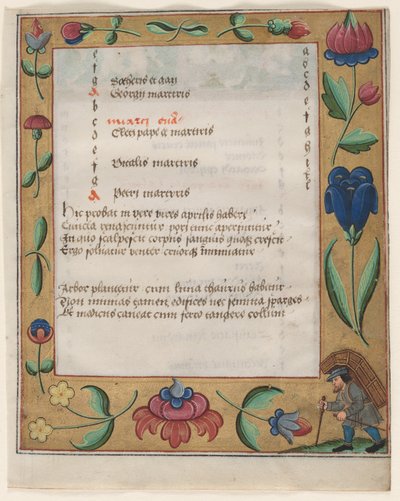 e
f
g Sotheris et Gaii
A Georgii martiris
b
c Marci eua.
d Cleti pape et martiris
e
f Vitalis martiris
g
A Petri martyris
Hic probat in vere vires aprilis habere
Cuncta renascuntur pori tunc aperiuntur
In quo scalpescit corpus sanguis quoque crescit
Ergo soluatur venter cruorque minuatur
Arbor plantetur cum luna thaurus habetur
Non minuas tamen edifices nec semina spargas
Et medicus caueat cum fero tangere collum